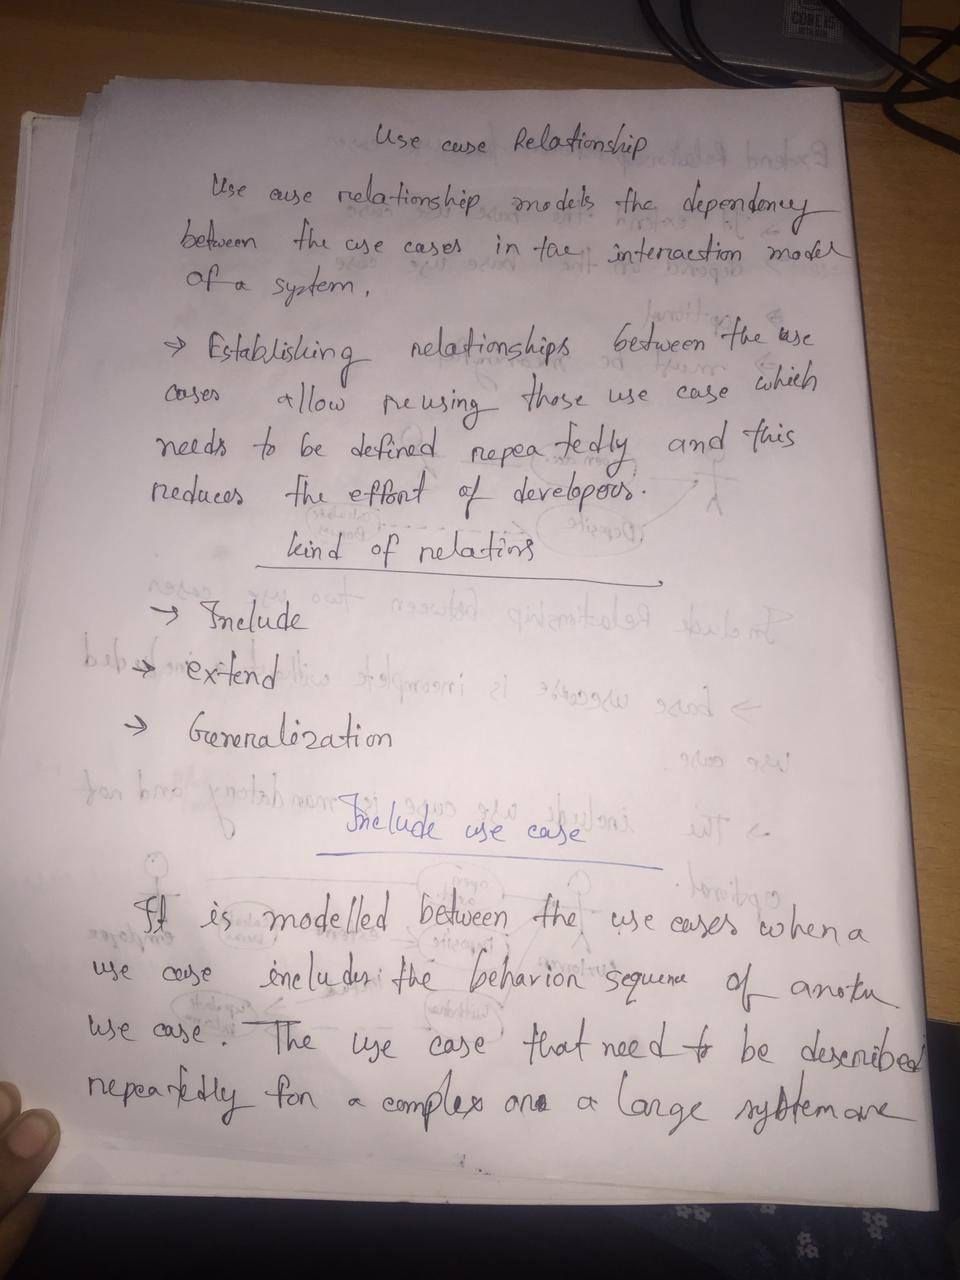 CORE i5
Use case Relationship
Use case relationship models the dependency
between the use cases in the interaction model
of a system.
→ Establishing relationships between the use
cases allow reusing those use case which
needs to be defined repeatedly and this
reduces the effort of developers.
kind of relations
→ Include
→ extend
→ Generalization
Include use case
It is modelled between the use cases when a
use case includes the behavior sequence of another
use case. The use case that need to be described
repeatedly for a complex or a large system are